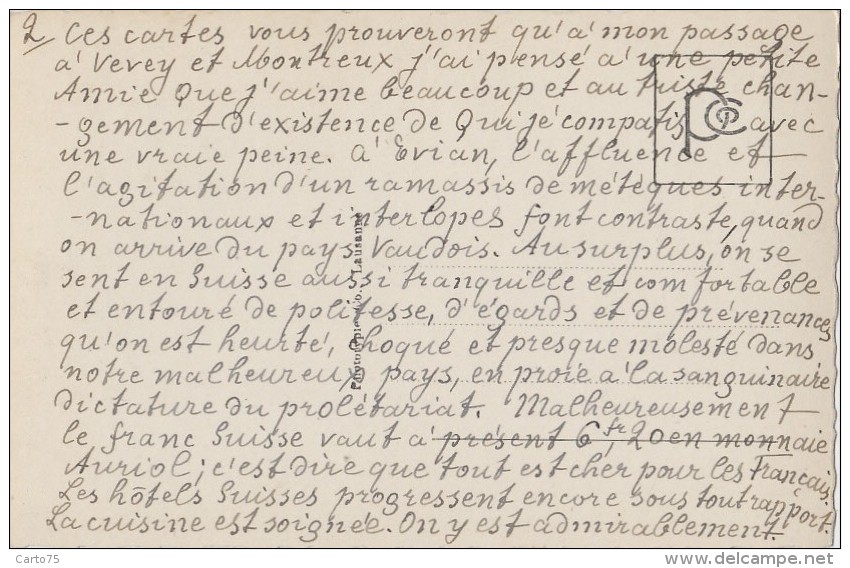 2/ Ces cartes vous prouveront qu'à mon passage
à Vevey et Montreux j'ai pensé à une petite
Amie que j'aime beaucoup et au triste chan-
-gement d'existence de qui je compatis avec
une vraie peine. à Evian, l'affluence et
l'agitation d'un ramassis de métèques inter-
-nationaux et interlopes font contraste, quand
on arrive du pays Vaudois. Au surplus, on se
sent en Suisse aussi tranquille et comfortable
et entouré de politesse, d'égards et de prévenances
qu'on est heurté, choqué et presque molesté dans
notre malheureux pays, en proie à la sanguinaire
dictature du prolétariat. Malheureusement
le franc Suisse vaut à présent 6fr,20 en monnaie
Auriol; c'est dire que tout est cher pour les Français.
Les hôtels Suisses progressent encore sous tout rapport.
La cuisine est soignée. On y est admirablement
Lausanne
Carto75
www.delcampe.net